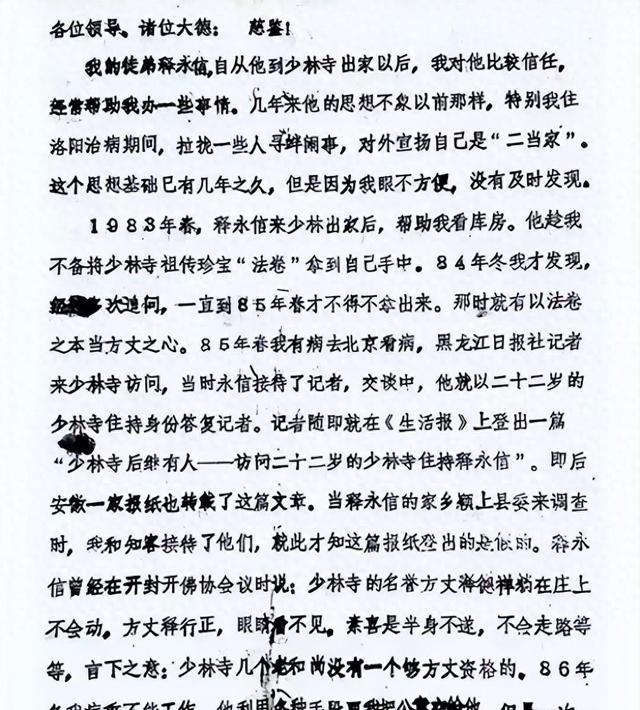 各位领导。诸位大德：　慈鉴！
我的徒弟释永信，自从他到少林寺出家以后，我对他比较信任，
经常帮助我办一些事情。几年来他的思想不象以前那样，特别我住
洛阳治病期间，拉拢一些人寻衅闹事，对外宣扬自己是“二当家”。
这个思想基础已有几年之久，但是因为我眼不方便，没有及时发现。
1983年春，释永信来少林出家后，帮助我看库房。他趁我
不备将少林寺祖传珍宝“法卷”拿到自己手中。84年冬我才发现，
次追问，一直到85年春才不得不拿出来。那时就有以法卷
之本当方丈之心。85年春我有病去北京看病，黑龙江日报社记者
来少林寺访问，当时永信接待了记者，交谈中，他就以二十二岁的
少林寺住持身份答复记者。记者随即就在《生活报》上登出一篇
“少林寺后继有人——访问二十二岁的少林寺住持释永信”。即后
安徽一家报纸也转载了这篇文章。当释永信的家乡颍上县委来调查
时，我和知客接待了他们，就此才知这篇报纸登出的是假的。释永
信曾经在开封开佛协会议时说：少林寺的名誉方丈释德禅躺在庄上
不会动。方丈释行正，眼睛看不见。素喜是半身不遂，不会走路等
等，言下之意：少林寺几个老和尚没有一个够方丈资格的。86年
不能工作，他利用各种手段要我把公章交给他，但是一次